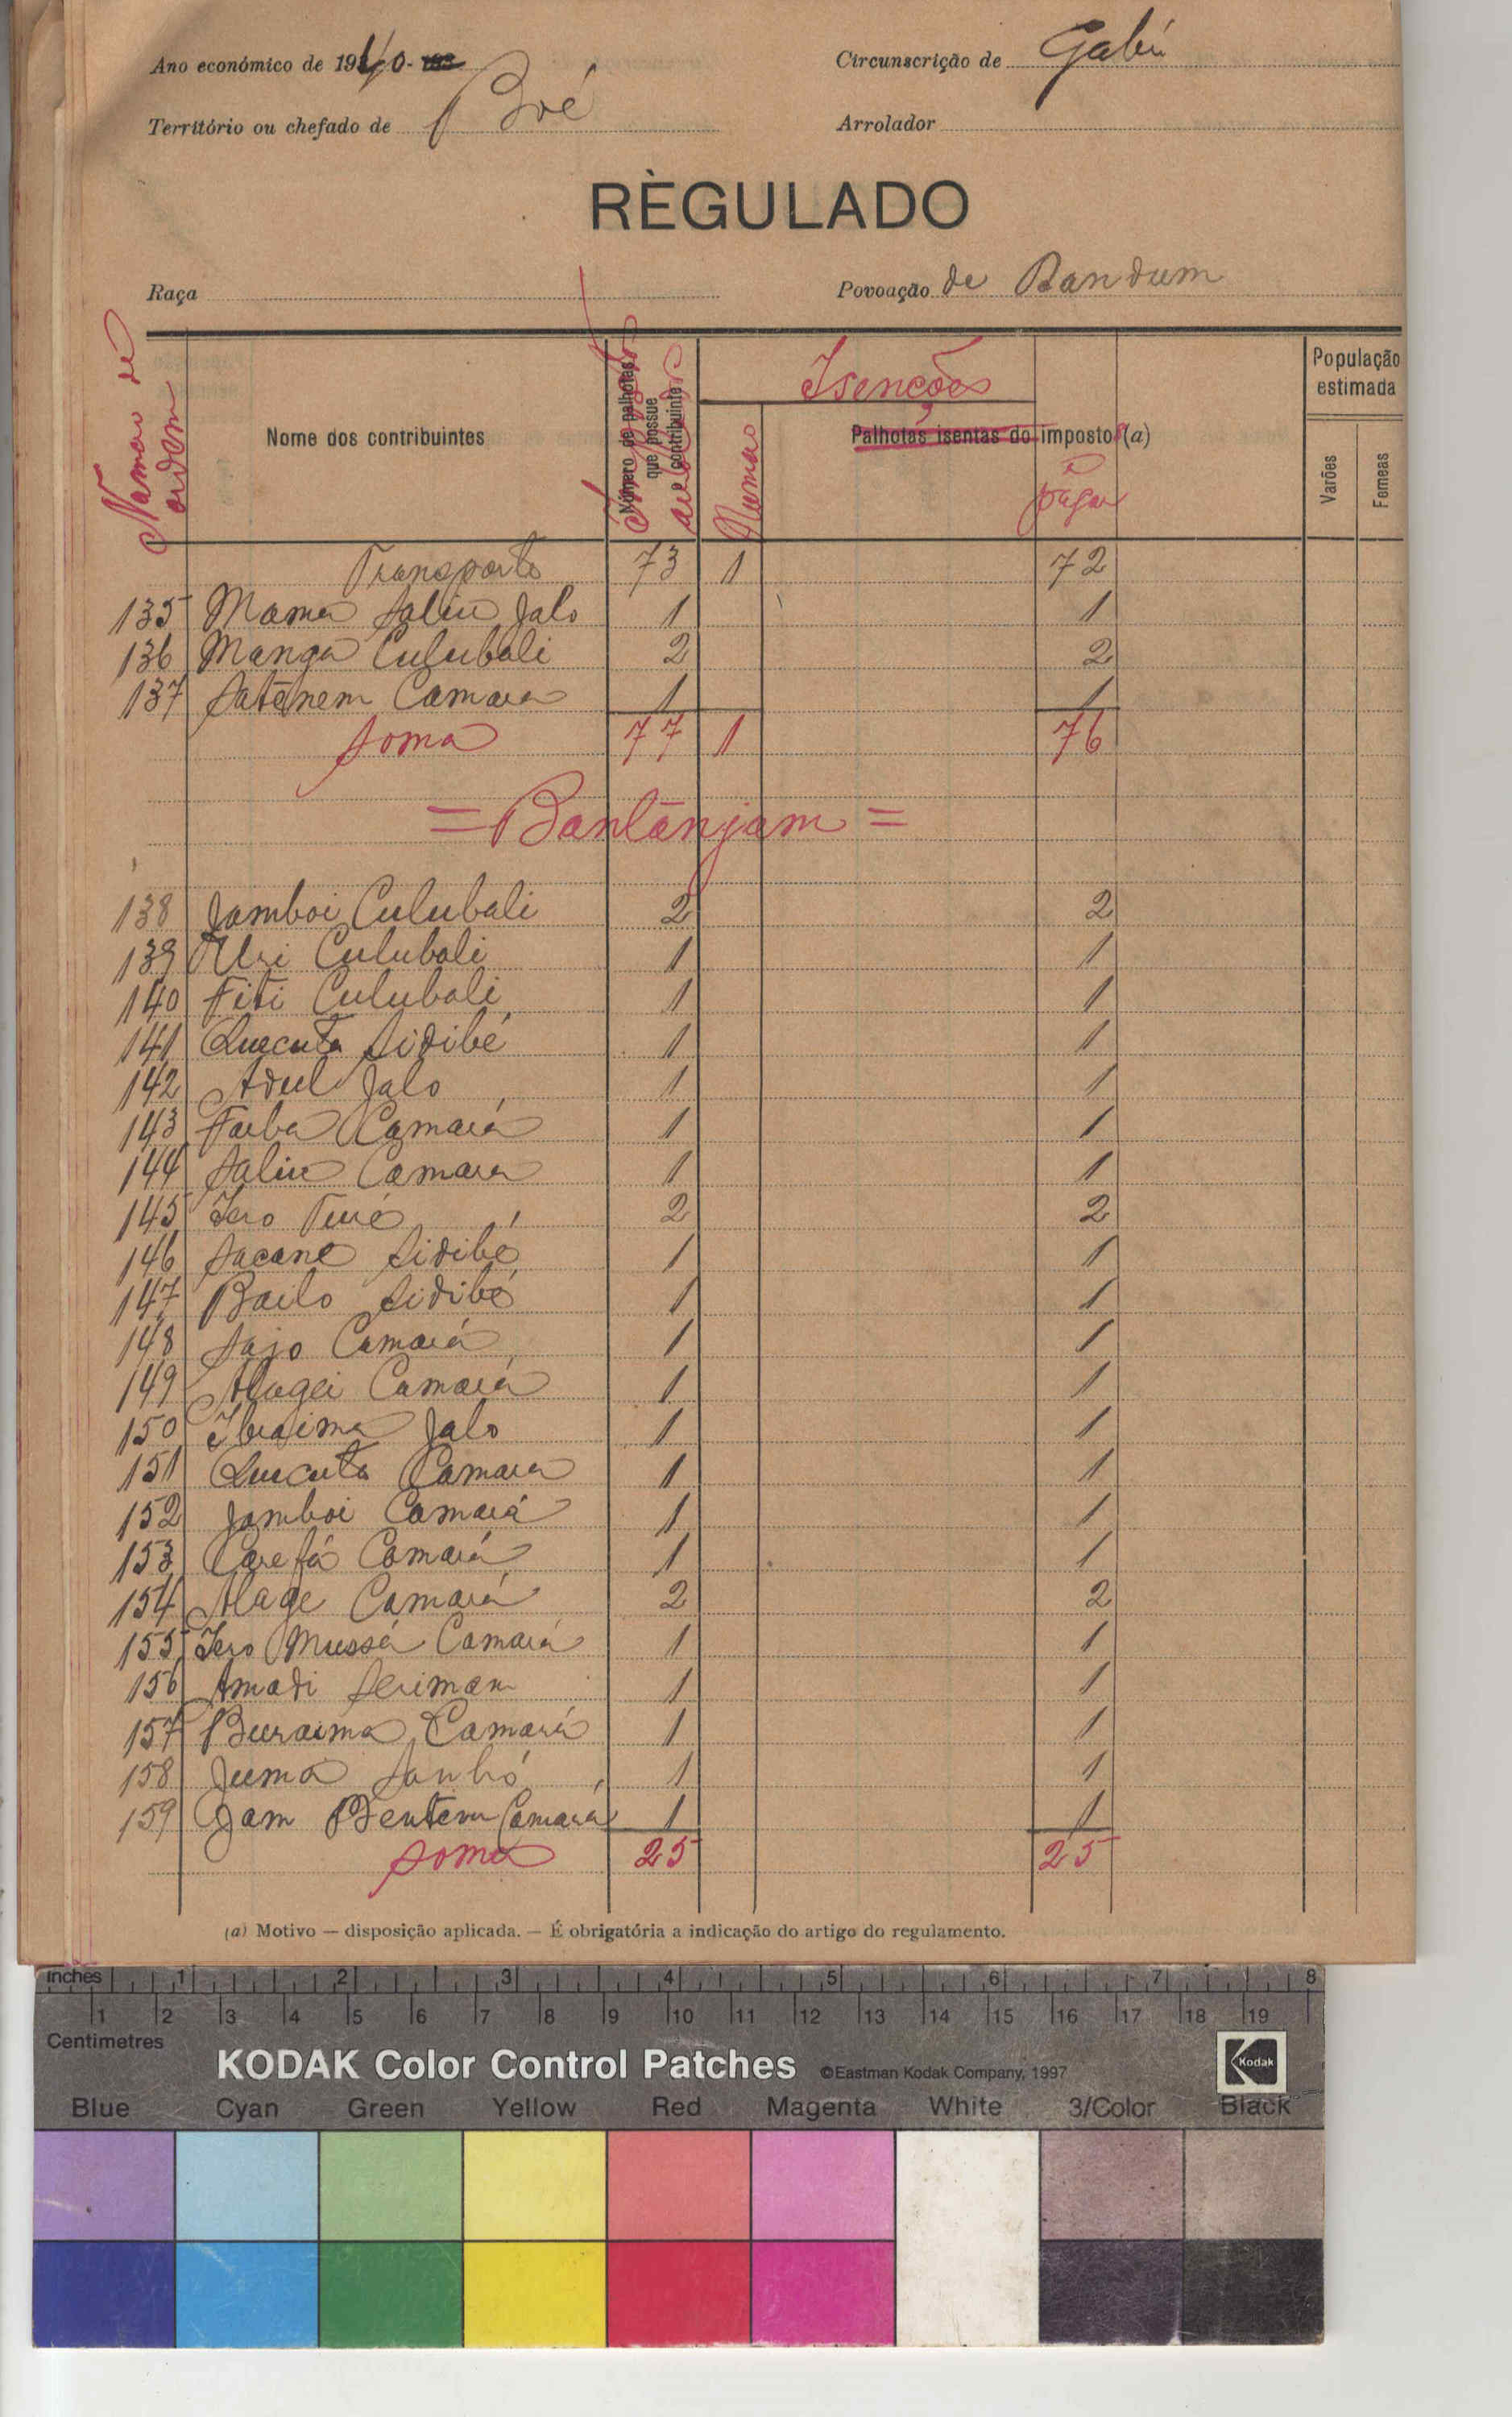 Ano económico de 1940-
Circunscrição de Gabú
Território ou chefado de Boé
Arrolador
RÈGULADO
Raça
Povoação de Bandum
Número de ordem
Nome dos contribuintes
Número de palhotas que possue o contribuinte
Impostos arrolados
Isenções
Numero
Palhotas isentas do imposto (a)
a pagar
População estimada
Varões
Femeas
Transporte 73 1 72
135 Mama Saliu Jalo 1 1
136 Manga Culubali 2 2
137 Satenem Camara 1 1
Soma 77 1 76
= Bantanjam =
138 Jamboi Culubali 2 2
139 Uri Culubali 1 1
140 Fiti Culubali 1 1
141 Quecuta Sidibé 1 1
142 Adul Jalo 1 1
143 Faiba Camará 1 1
144 Saliu Camara 1 1
145 Iero Turé 2 2
146 Sacane Sidibé 1 1
147 Bailo Sidibé 1 1
148 Sajo Camará 1 1
149 Alagei Camará 1 1
150 Ibraima Jalo 1 1
151 Quecuta Camara 1 1
152 Jamboi Camará 1 1
153 Carefá Camará 1 1
154 Alage Camará 2 2
155 Iero Mussá Camará 1 1
156 Amadi Seriman 1 1
157 Buraima Camará 1 1
158 Juma Sanhó 1 1
159 Jam Bentem Camará 1 1
Soma 25 25
(a) Motivo — disposição aplicada. — É obrigatória a indicação do artigo do regulamento.
inches 1 2 3 4 5 6 7 8
1 2 3 4 5 6 7 8 9 10 11 12 13 14 15 16 17 18 19
Centimetres
KODAK Color Control Patches ©Eastman Kodak Company, 1997 Kodak
Blue Cyan Green Yellow Red Magenta White 3/Color Black